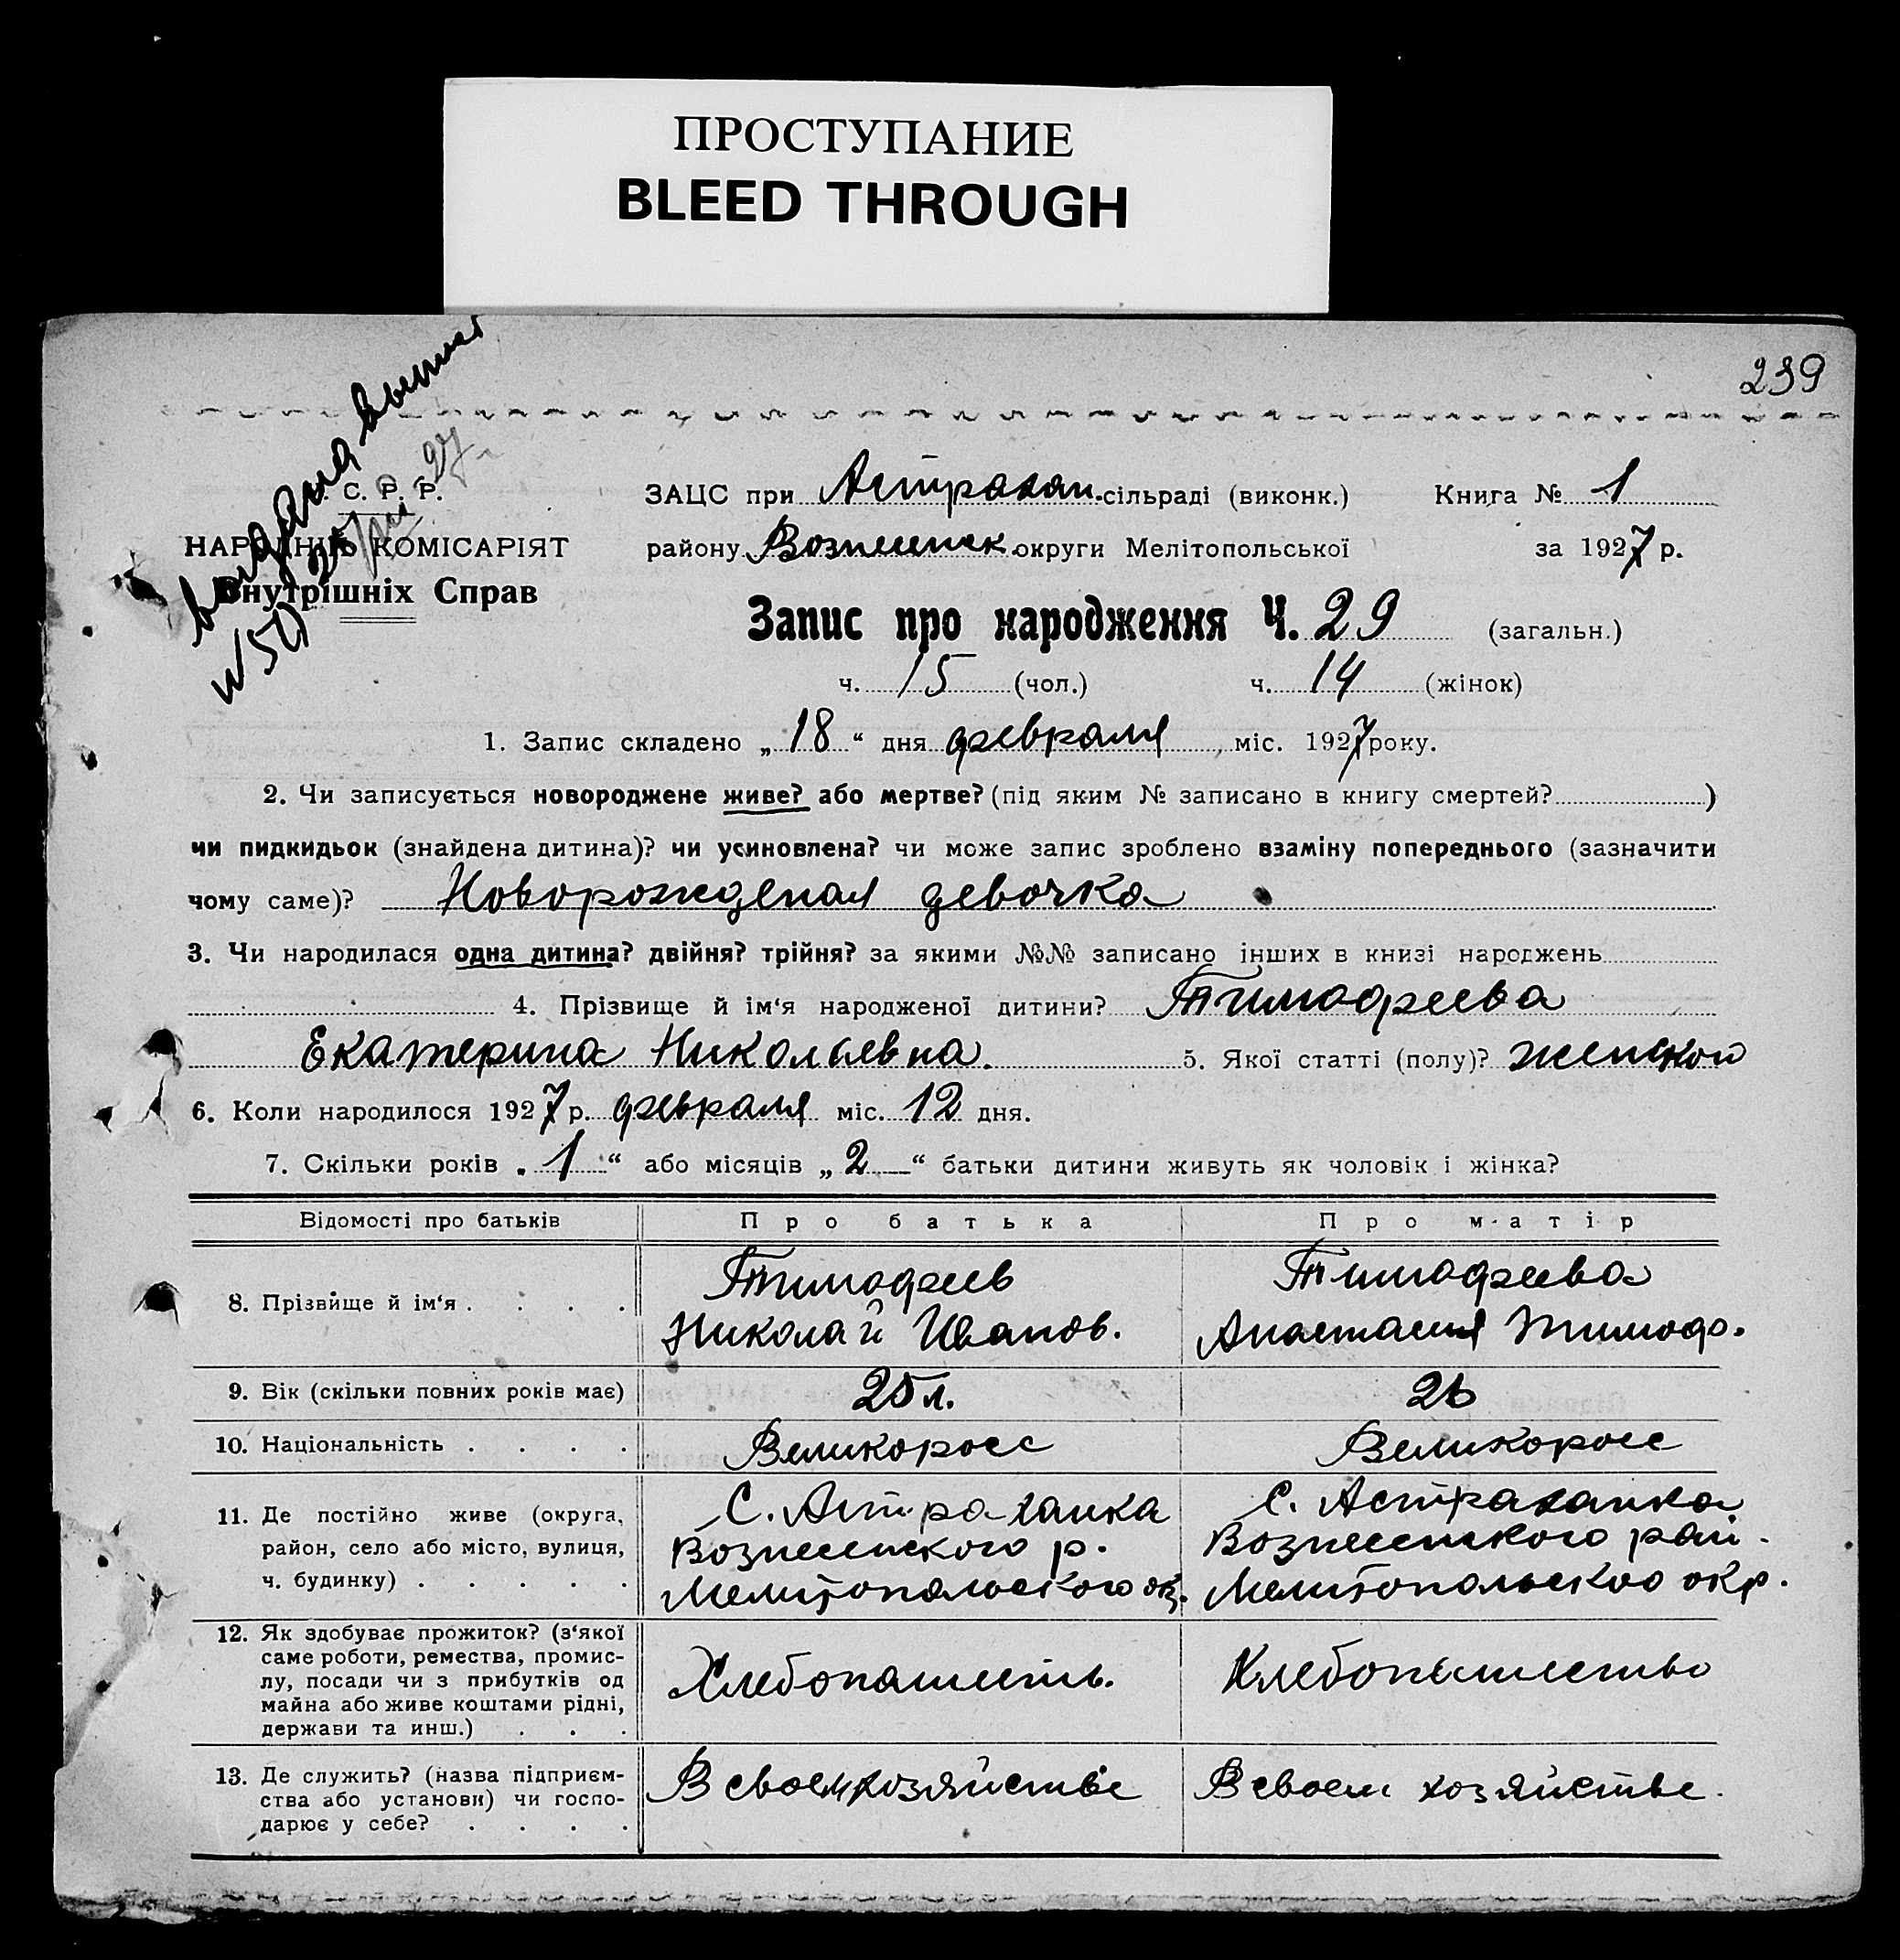 ПРОСТУПАНИЕ
BLEED THROUGH
239
выдана выпись
27 г.
№ 50
С. Р. Р.
НАРОДНІЙ КОМІСАРІЯТ
Внутрішніх Справ
ЗАЦС при Астрахан. сільраді (виконк.) Книга № 1
району Вознесенск округи Мелітопольської за 1927 р.
Запис про народження Ч. 29 (загальн.)
ч. 15 (чол.) ч. 14 (жінок)
1. Запис складено „ 18 “ дня февраля, міс. 1927 року.
2. Чи записується новороджене живе? або мертве? (під яким № записано в книгу смертей? )
чи пидкидьок (знайдена дитина)? чи усиновлена? чи може запис зроблено взаміну попереднього (зазначити
чому саме)? Новорожденая девочка
3. Чи народилася одна дитина? двійня? трійня? за якими №№ записано інших в книзі народжень
4. Прізвище й ім‘я народженої дитини? Тимофеева
Екатерина Никольевна. 5. Якої статті (полу)? женской
6. Коли народилося 1927 р. февраля міс. 12 дня.
7. Скільки років „ 1 “ або місяців „ 2 “ батьки дитини живуть як чоловік і жінка?
Відомості про батьків Про батька Про матір
8. Прізвище й ім‘я . . . .
Тимофеев
Николай Иванов.
Тимофеева
Анастасия Тимоф.
9. Вік (скільки повних років має) 25 л. 26
10. Національність . . . . Великоросс Великоросс
11. Де постійно живе (округа,
район, село або місто, вулиця,
ч. будинку) . . . . .
С. Астраханка
Вознесенского р.
Мелитопольского ок.
С. Астраханка
Вознесенского рай.
Мелитопольского окр.
12. Як здобуває прожиток? (з‘якої
саме роботи, ремества, промис-
лу, посади чи з прибутків од
майна або живе коштами рідні,
держави та инш.) . . .
Хлебопашеств.
Хлебопашество
13. Де служить? (назва підприєм-
ства або установи) чи госпо-
дарює у себе? . . . .
В своем хозяйстве
В своем хозяйстве.